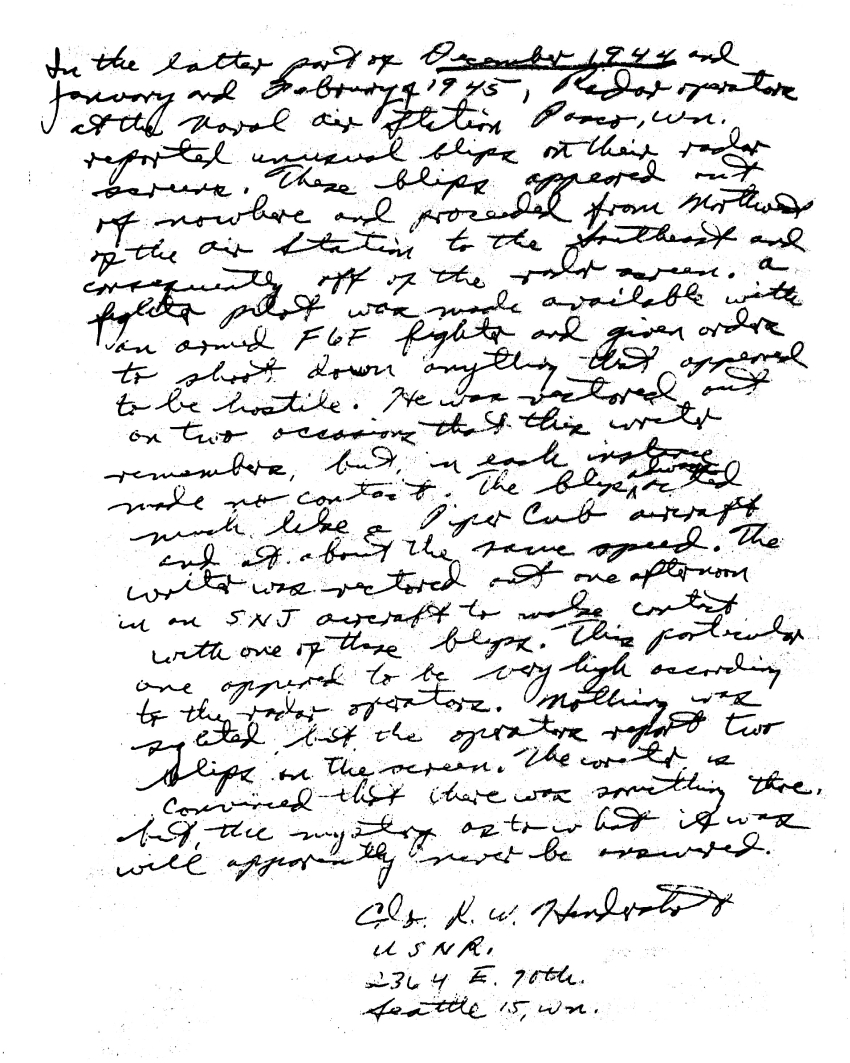 In the latter part of December 1944 and
January and February of 1945, Radar operators
at the Naval Air Station Pasco, Wn.
reported unusual blips on their radar
screens. These blips appeared out
of nowhere and proceeded from Northwest
of the air station to the Southeast and
consequently off of the radar screen. A
fighter pilot was made available with
an armed F6F fighter and given orders
to shoot down anything that appeared
to be hostile. He was vectored out
on two occasions that this writer
remembers, but, in each instance
made no contact. The blips always acted
much like a Piper Cub aircraft
and at about the same speed. The
writer was vectored out one afternoon
in an SNJ aircraft to make contact
with one of these blips. This particular
one appeared to be very high according
to the radar operators. Nothing was
sighted, but the operators report two
blips on the screen. The writer is
convinced that there was something there,
but, the mystery as to what it was
will apparently never be answered.
R. W.
USNR.
2364 E. 70th.
Seattle 15, Wn.